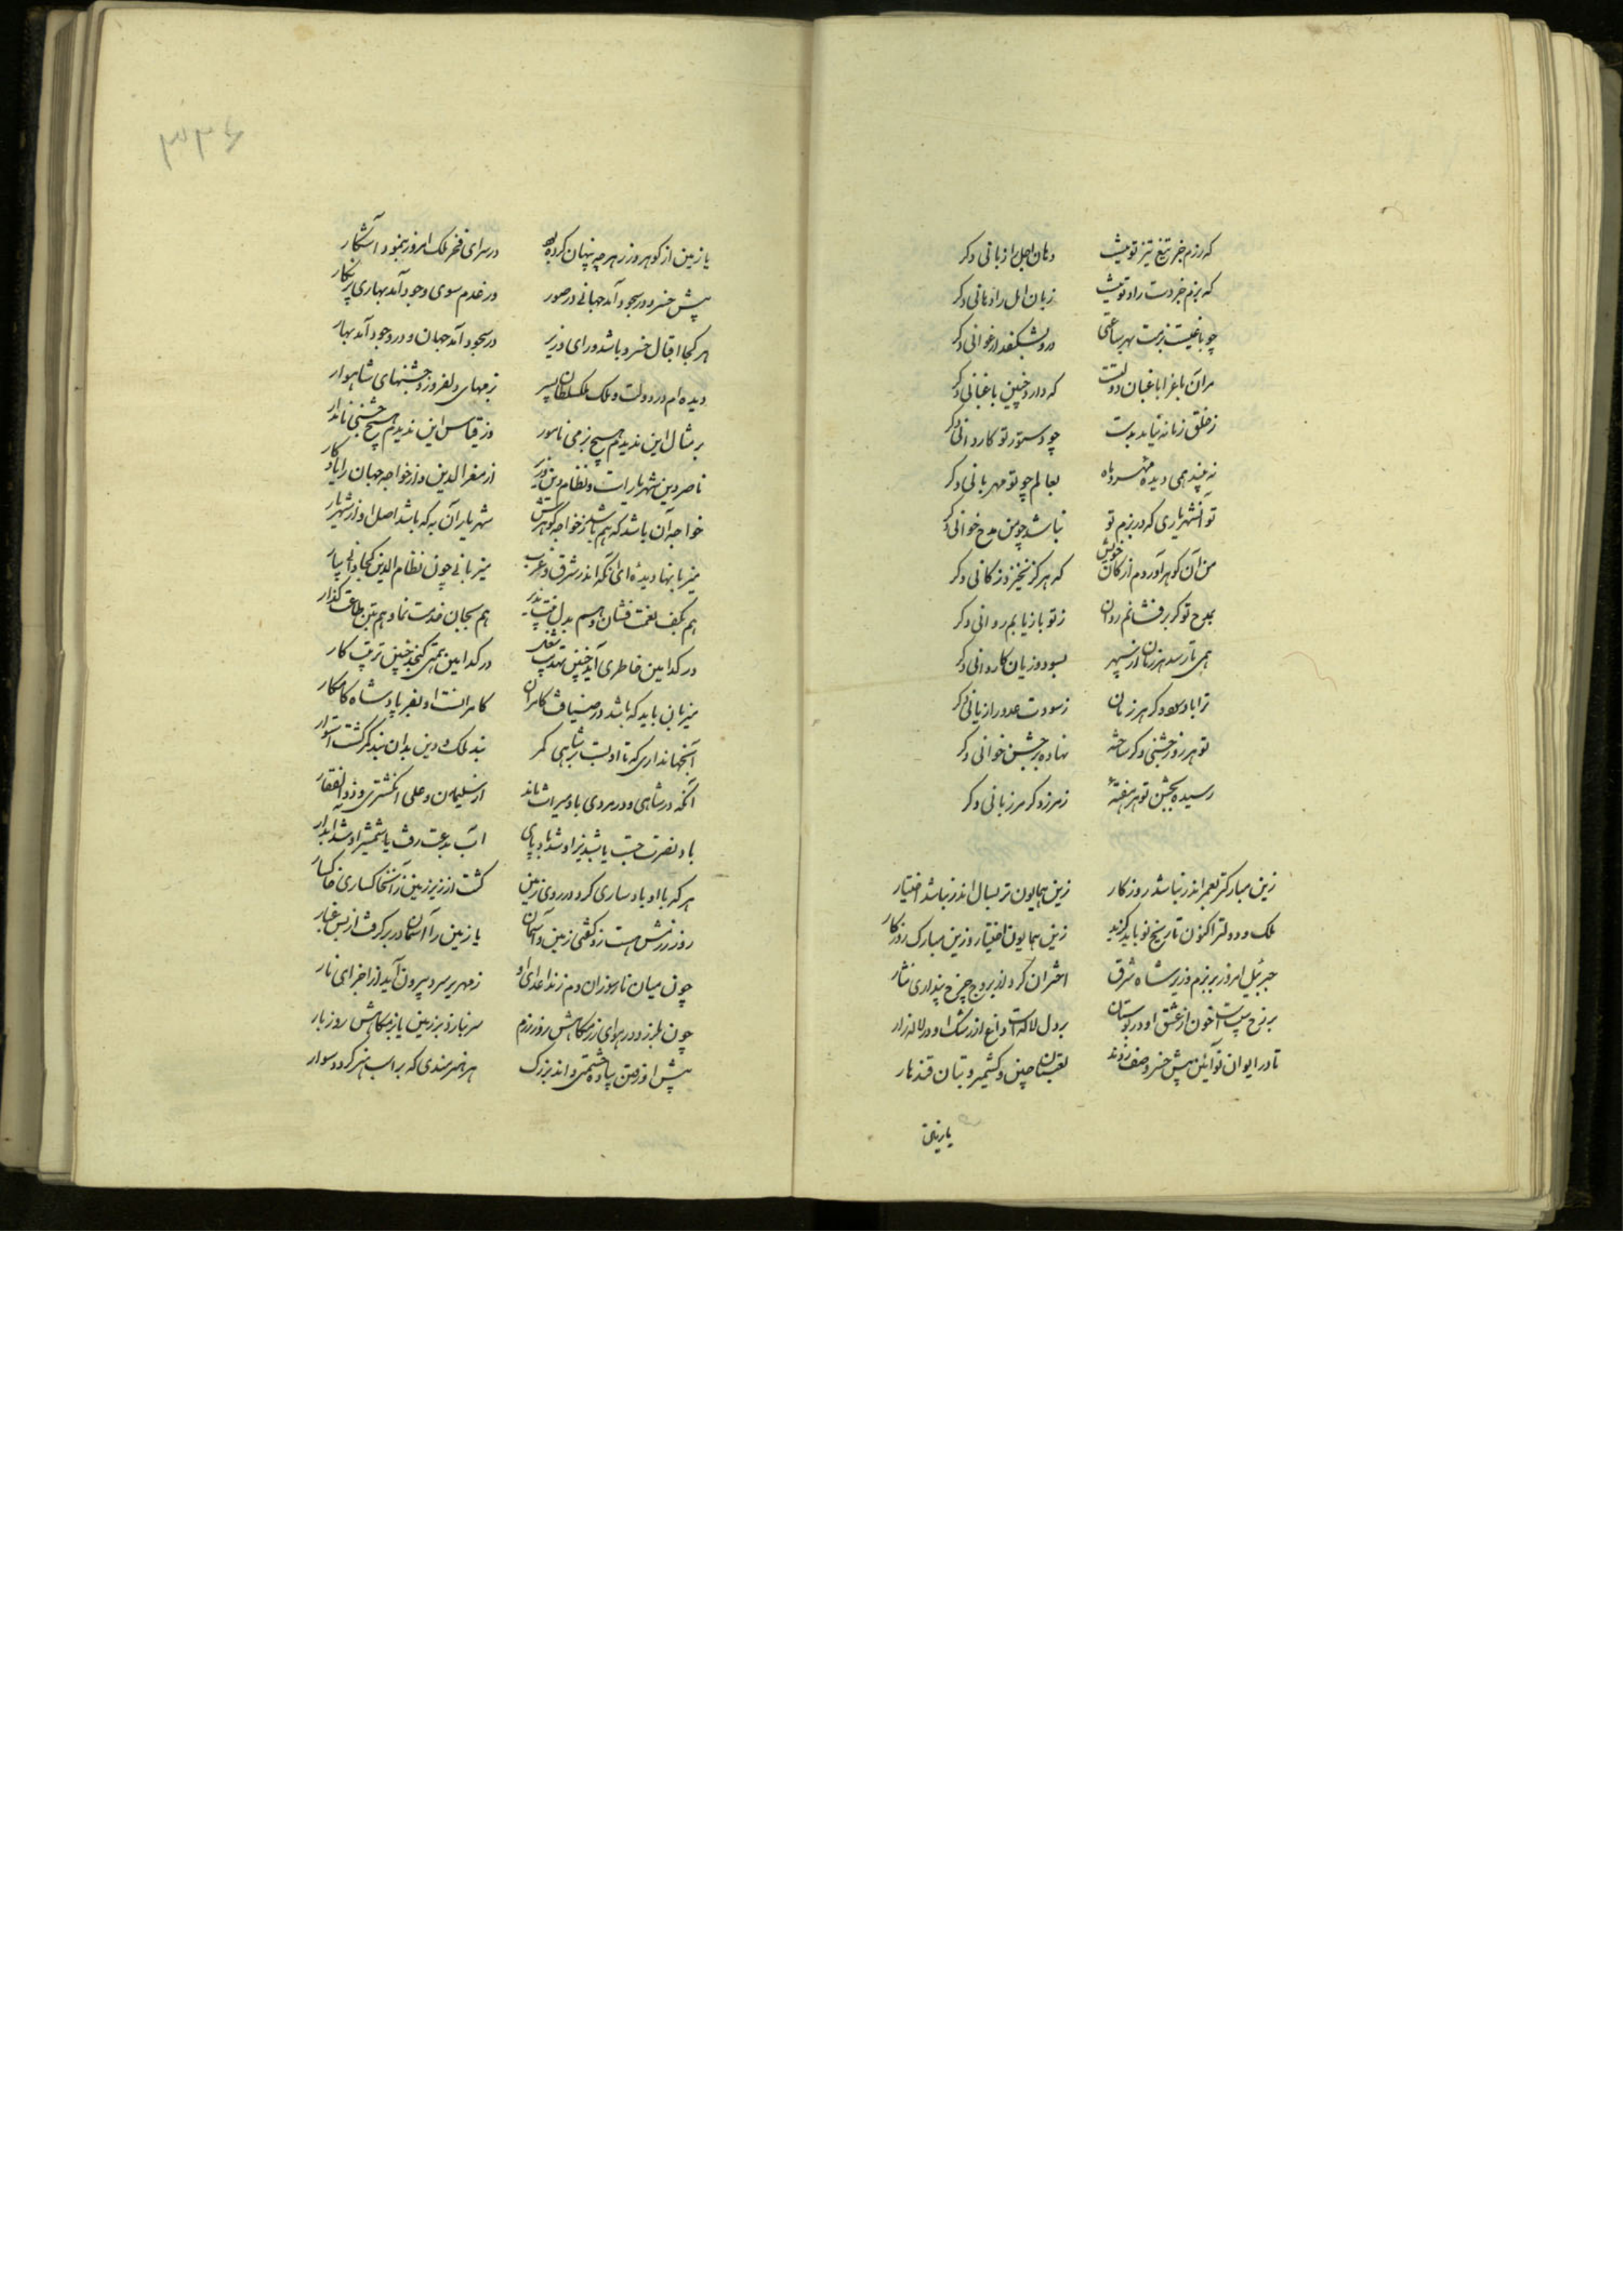 که رزم جز تیغ تیز تو نیست دهان اجل را زبانی دگر
که بزم جز دست راد تو نیست زبان امل را دهانی دگر
چو باغیست بزمت بهر ساعتی درو بشکفد ارغوانی دگر
مر آن باغ را باغبان دولتست که دارد چنین باغبانی دگر
ز خلق زمانه نیاید بدست چو دستور تو کاردانی دگر
نه چند همی دیده مهر و ماه بعالم چو تو مهربانی دگر
تو آن شهریاری که در بزم تو نباشد چو من مدح خوانی دگر
من آن گوهر آوردم از کان خویش که هرگز نخیزد ز کانی دگر
بمدح تو گر برفشانم روان ز تو باز یابم روانی دگر
همی تا رسد هر زمان از سپهر بسود و زیان کاروانی دگر
ترا باد سود دگر هر زمان ز سودت عدو را زیانی دگر
تو هر روز جشنی دگر ساخته نهاده بهر جشن خوانی دگر
رسیده بجشن تو هر هفتهٔ ز مرز دگر مرزبانی دگر
زین مبارکتر بعمر اندر نباشد روزگار زین همایون تر بسال اندر نباشد اختیار
ملک و دولت را کنون تاریخ نو باید گزید زین همایون اختیار و زین مبارک روزگار
جبرئیل امروز بر بزم وزیر شاه شرق اختران گرد از بروج چرخ پنداری نثار
بر رخ سیبست خون از عشق او در بوستان بر دل لاله است داغ از رشک او در لاله زار
تا در ایوان نو آئین پیش خسرو صف زدند لعبتان چین و کشمیر و بتان قندهار
یا زمین
یا زمین از گوهر و زر هر چه پنهان کرده بود در سرای فخر ملک امروز بنمود آشکار
پیش خسرو در سجود آمد جهانی در صور در عدم سوی وجود آمد بهاری پر نگار
هر کجا اقبال خسرو باشد و رای وزیر در سجود آمد جهان و در وجود آمد بهار
دیده ام در دولت و ملک ملکسلطان پسر بزمهای دلفروز و جشنهای شاهوار
بر مثال این ندیدم هیچ بزمی نامور وز قیاس این ندیدم هیچ جشنی نامدار
ناصر دین شهریارست و نظام دین وزیر از معز الدین و از خواجه جهان را یادگار
خواجه آن باشد که هم باشد ز خواجه گوهرش شهریار آن به که باشد اصل او از شهریار
میزبانها دیدهٔ ای آنکه اندر شرق و غرب میزبانی چون نظام الدین کجا دانی بیار
هم بکف نعمت فشان و هم بدل منت پذیر هم بجان خدمت نما و هم بتن طاعت گذار
در کدامین خاطری آید چنین تهذیب شغل در کدامین همتی گنجد چنین ترتیب کار
میزبان باید که باشد در ضیافت کامران کامرانست او بفر پادشاه کامکار
آنجهانداری که تا او بست بر شاهی کمر بند ملک و دین بدان بند کمر گشت استوار
آنکه در شاهی و در مردی باو میراث ماند از سلیمان و علی انگشتری و ذوالفقار
باد نصرت جست یا شبدیز او شد باد پای آب بدعت رفت یا شمشیر او شد آبدار
هر که با او باد ساری کرد در روی زمین گشت از زیر زمین ز آن خاکساری خاکسار
روز رزمش هست زد گفتی زمین و آسمان یا زمین را آسمان در بر گرفت از بس غبار
چون میان نار سوزان دم زند اعدای او زمهریر سرد بیرون آید از اجزای نار
چون بلرزد در هوای رزمگاهش روز رزم سر نبارد بر زمین بازمگاهش روز بار
پیش او رفتن پیاده حشمتی داند بزرگ هر هنرمندی که بر اسب هنر گردد سوار